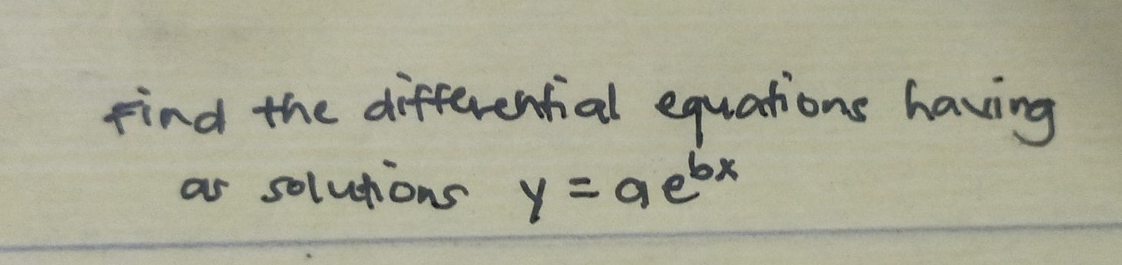 Find the differential equations having
as solutions y = ae^{bx}